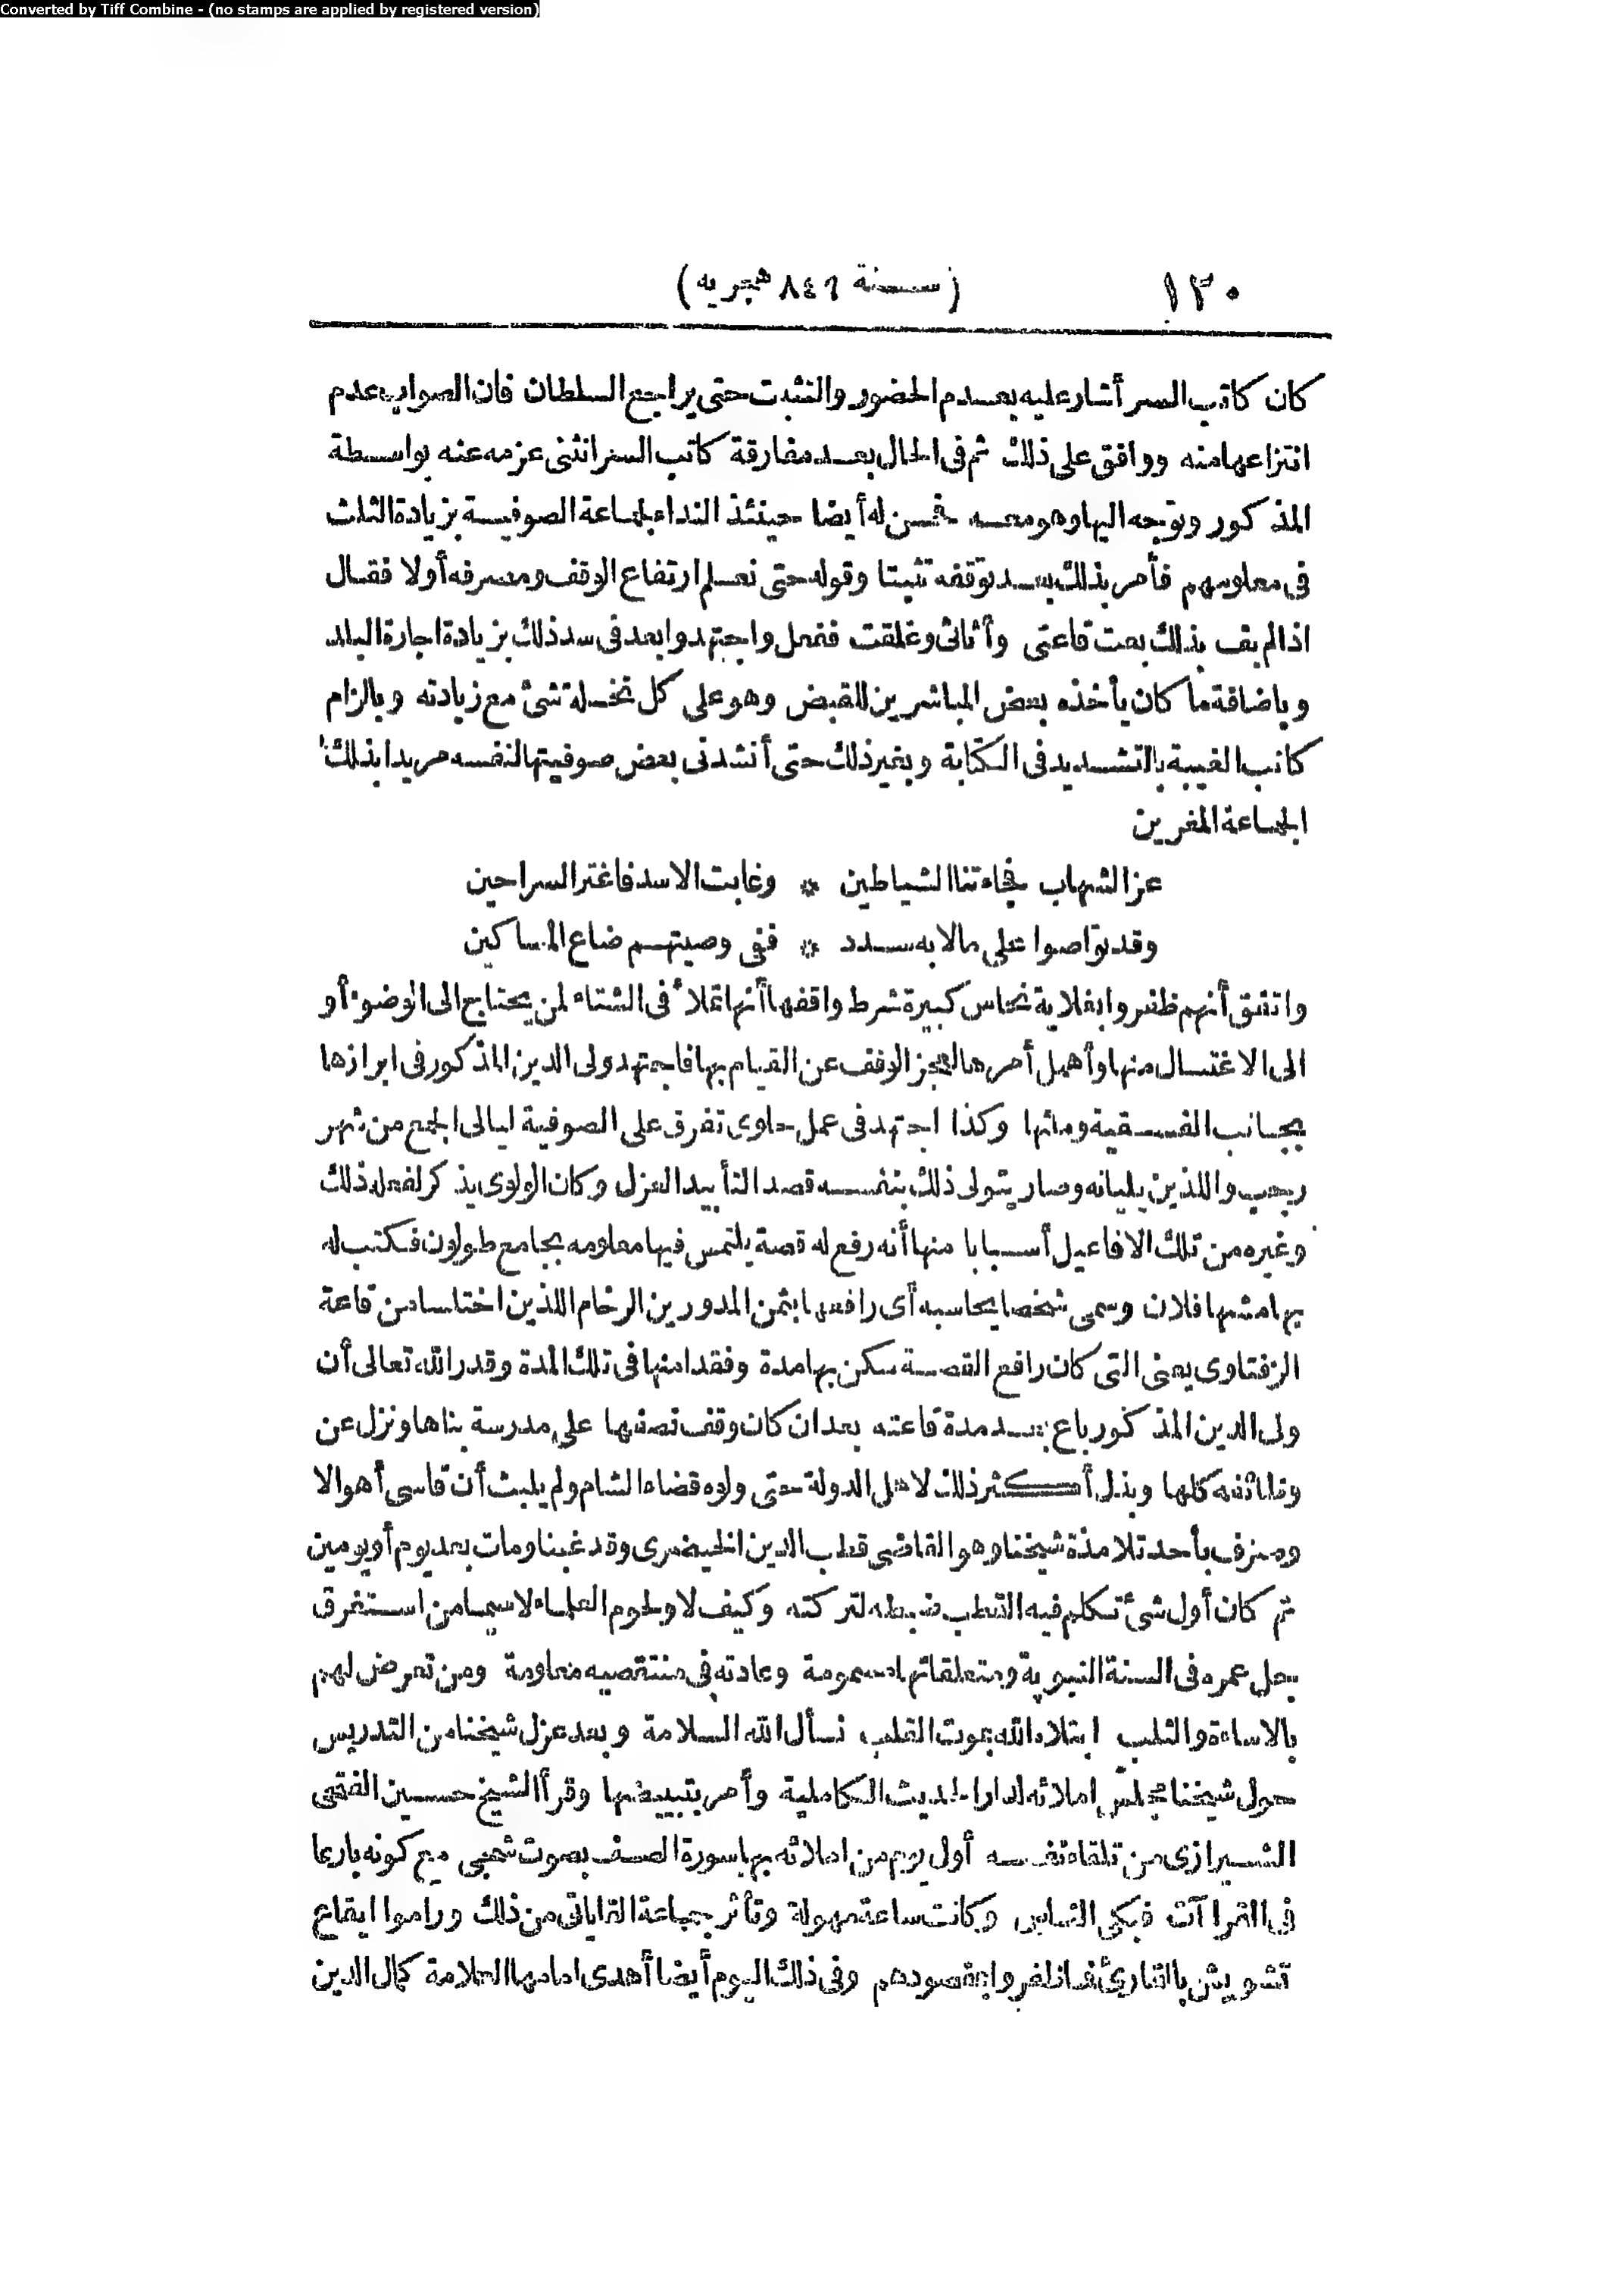 Converted by Tiff Combine - (no stamps are applied by registered version)
١٣٠ (سنة ٨٤٦ هجريه)
كان كاتب السر أشار عليه بعدم الحضور والتثبت حتى يراجع السلطان فان الصواب عدم
انتزاعها منه ووافق على ذلك ثم فى الحال بعد مفارقة كاتب السر انثنى عزمه عنه بواسطة
المذكور وتوجه اليها وهو معه فحسن له أيضا حينئذ النداء لجماعة الصوفية بزيادة الثلث
فى معلومهم فأمر بذلك بعد توقفه تثبتا وقوله حتى نعلم ارتفاع الوقف ومصرفه أولا فقال
اذا لم يف بذلك بعت قاعتى وأثاثى وغلقت ففعل واجتهدوا بعد فى سد ذلك بزيادة اجارة البلد
وباضافة ما كان يأخذه بعض المباشرين للقبض وهو على كل نخلة شئ مع زيادته وبالزام
كاتب الغيبة بالتشديد فى الكتابة وبغير ذلك حتى أنشدنى بعض صوفيتها لنفسه مريدا بذلك
الجماعة المغرين
عز الشهاب فجاءتنا الشياطين * وغابت الاسد فاغتر السراحين
وقد تواصوا على مالا به سدد * ففى وصيتهم ضاع المساكين
واتفق أنهم ظفروا بغلاية نحاس كبيرة شرط واقفها أنها تملأ فى الشتاء لمن يحتاج الى الوضوء أو
الى الاغتسال منها وأهمل أمرها لعجز الوقف عن القيام بها فاجتهد ولى الدين المذكور فى ابرازها
بجانب الفسقية وملئها وكذا اجتهد فى عمل حلوى تفرق على الصوفية ليالى الجمع من شهر
رجب واللذين يليانه وصار يتولى ذلك بنفسه قصد التأبيد العزل وكان الولوى يذكر لفعله ذلك
وغيره من تلك الافاعيل أسبابا منها أنه رفع له قصة يلتمس فيها معلومه بجامع طولون فكتب له
بهامشها فلان وسمى شخصا يحاسبه أى رافعها بثمن المدورين الرخام اللذين اختلسا من قاعة
الزفتاوى يعنى التى كان رافع القصة سكن بها مدة وفقدا منها فى تلك المدة وقدر الله تعالى أن
ولى الدين المذكور باع بعد مدة قاعته بعد ان كان وقف نصفها على مدرسة بناها ونزل عن
وظائفه كلها وبذل أكثر ذلك لاهل الدولة حتى ولوه قضاء الشام ولم يلبث أن قاسى أهوالا
وصرف بأحد تلامذة شيخنا وهو القاضى قطب الدين الخيضرى وقد غبنا ومات بعد يوم أو يومين
ثم كان أول شئ تكلم فيه القطب ضبطه لتركته وكيف لا ولحوم العلماء لا سيما من استغرق
جل عمره فى السنة النبوية ومتعلقاتها مسمومة وعادته فى منتقصيه معلومة ومن تعرض لهم
بالاساءة والثلب ابتلاه الله بموت القلب نسأل الله السلامة وبعد عزل شيخنا من التدريس
حول شيخنا مجلس املائه لدار الحديث الكاملية وأمر بتبييضها وقرأ الشيخ حسين الفتحى
الشيرازى من تلقاء نفسه أول يوم من املائه بها سورة الصف بصوت شجى مع كونه بارعا
فى القراآت فبكى الناس وكانت ساعة مهولة وتأثر جماعة القاياتى من ذلك وراموا ايقاع
تشويش بالقارئ فما ظفروا بمقصودهم وفى ذلك اليوم أيضا أهدى امامها العلامة كمال الدين